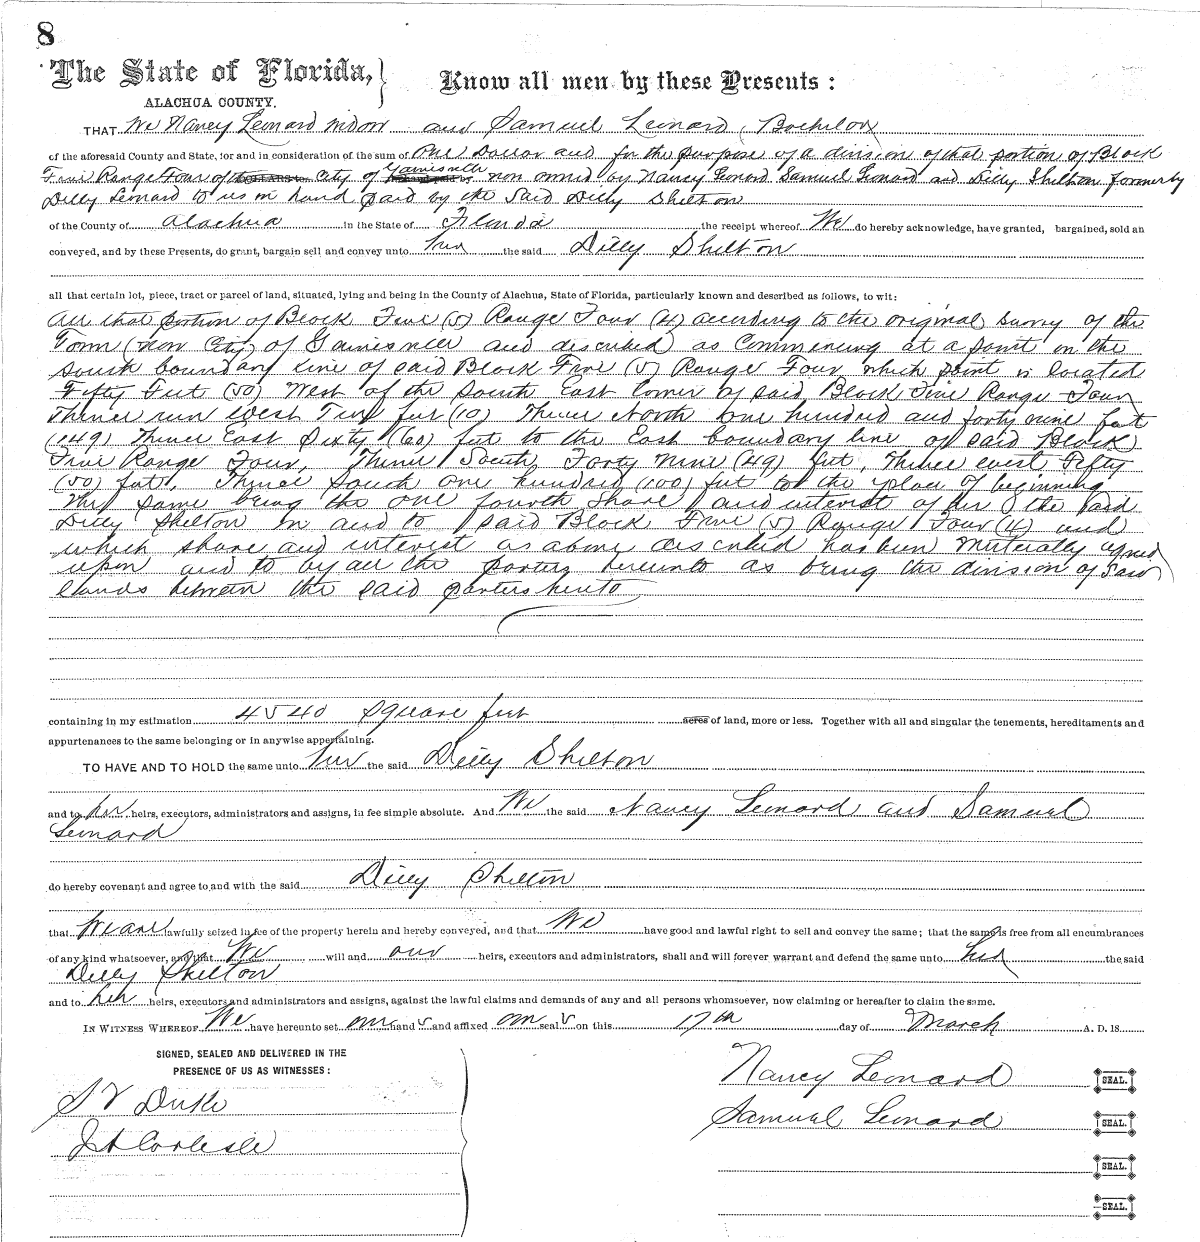 8
The State of Florida, } Know all men by these Presents :
ALACHUA COUNTY.
THAT We Nancy Leonard widow and Samuel Leonard, Bachelor
of the aforesaid County and State, for and in consideration of the sum of One Dollar and for the purpose of a division of that portion of Block
Five Range Four of City of Gainesville now owned by Nancy Leonard Samuel Leonard and Dilly Shelton formerly
Dilly Leonard to us in hand paid by the Said Dilly Shelton
of the County of Alachua in the State of Florida the receipt whereof We do hereby acknowledge, have granted, bargained, sold an
conveyed, and by these Presents, do grant, bargain sell and convey unto her the said Dilly Shelton
all that certain lot, piece, tract or parcel of land, situated, lying and being in the County of Alachua, State of Florida, particularly known and described as follows, to wit:
All that portion of Block Five (5) Range Four (4) according to the original survey of the
Town (now City) of Gainesville and discribed as Commencing at a point on the
south boundary line of said Block Five (5) Range Four, which point is located
Fifty Feet (50) West of the South East Corner of said Block Five Range Four
Thence run West Ten feet (10) Thence North One hundred and forty nine feet
(149) Thence East Sixty (60) feet to the East boundary line of said Block
Five Range Four, Thence South Forty Nine (49) feet, Thence west Fifty
(50) feet, Thence South one hundred (100) feet to the place of beginning
The same being the one fourth share and interest of her the said
Dilly Shelton in and to said Block Five (5) Range Four (4) and
which share and interest as above discribed has been Mutually agreed
upon and to by all the parties hereunto as being the division of Said
lands between the said parties hereto
containing in my estimation 4540 Square feet acres of land, more or less. Together with all and singular the tenements, hereditaments and
appurtenances to the same belonging or in anywise appertaining.
TO HAVE AND TO HOLD the same unto her the said Dilly Shelton
and to her heirs, executors, administrators and assigns, in fee simple absolute. And We the said Nancy Leonard and Samuel
Leonard
do hereby covenant and agree to and with the said Dilly Shelton
that We are lawfully seized in fee of the property herein and hereby conveyed, and that We have good and lawful right to sell and convey the same; that the same is free from all encumbrances
of any kind whatsoever, and that We will and our heirs, executors and administrators, shall and will forever warrant and defend the same unto her the said
Dilly Shelton
and to her heirs, executors and administrators and assigns, against the lawful claims and demands of any and all persons whomsoever, now claiming or hereafter to claim the same.
IN WITNESS WHEREOF We have hereunto set our hand s and affixed our seal s on this 17th day of March A. D. 18
SIGNED, SEALED AND DELIVERED IN THE
PRESENCE OF US AS WITNESSES :
Nancy Leonard SEAL.
S V Duke
Samuel Leonard SEAL.
J A Carlisle
SEAL.
SEAL.